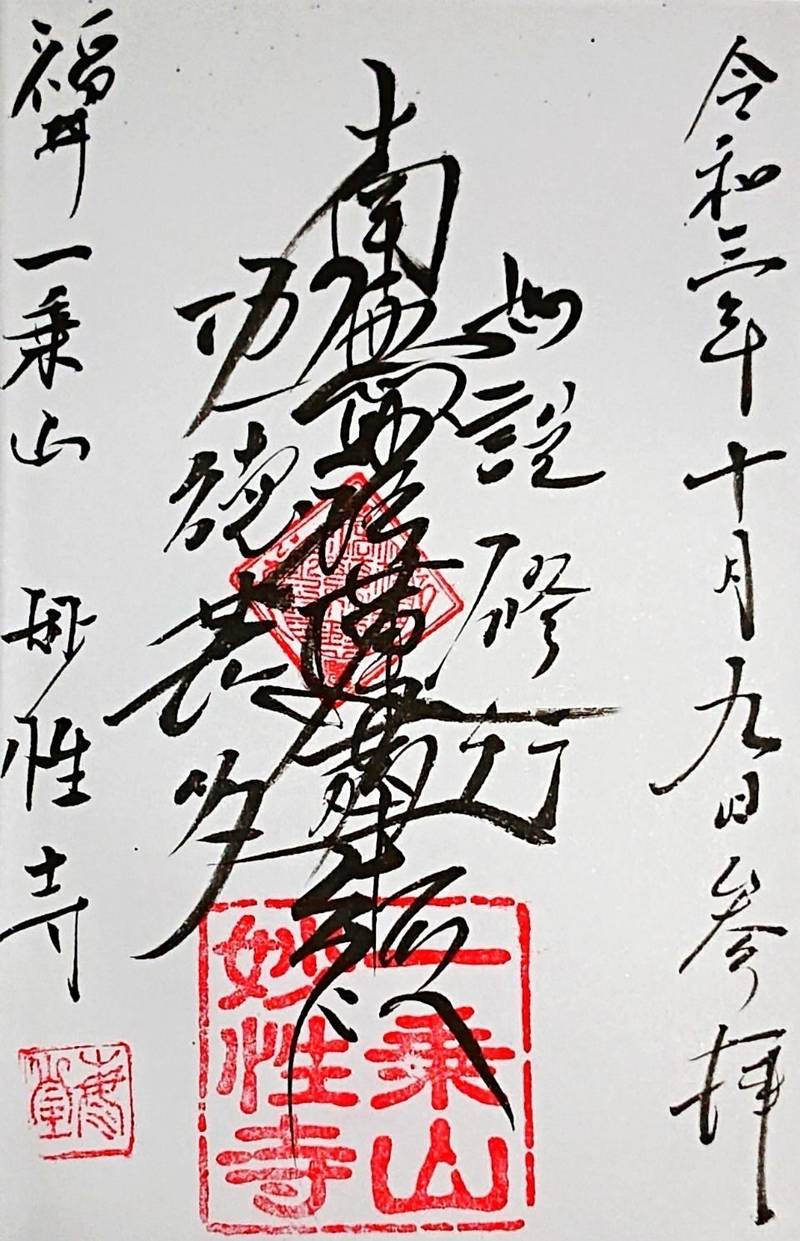 令和三年十月九日参拝
如説修行
南無妙法蓮華経
功徳甚多
福井 一乗山 妙性寺
一乗山
妙性寺